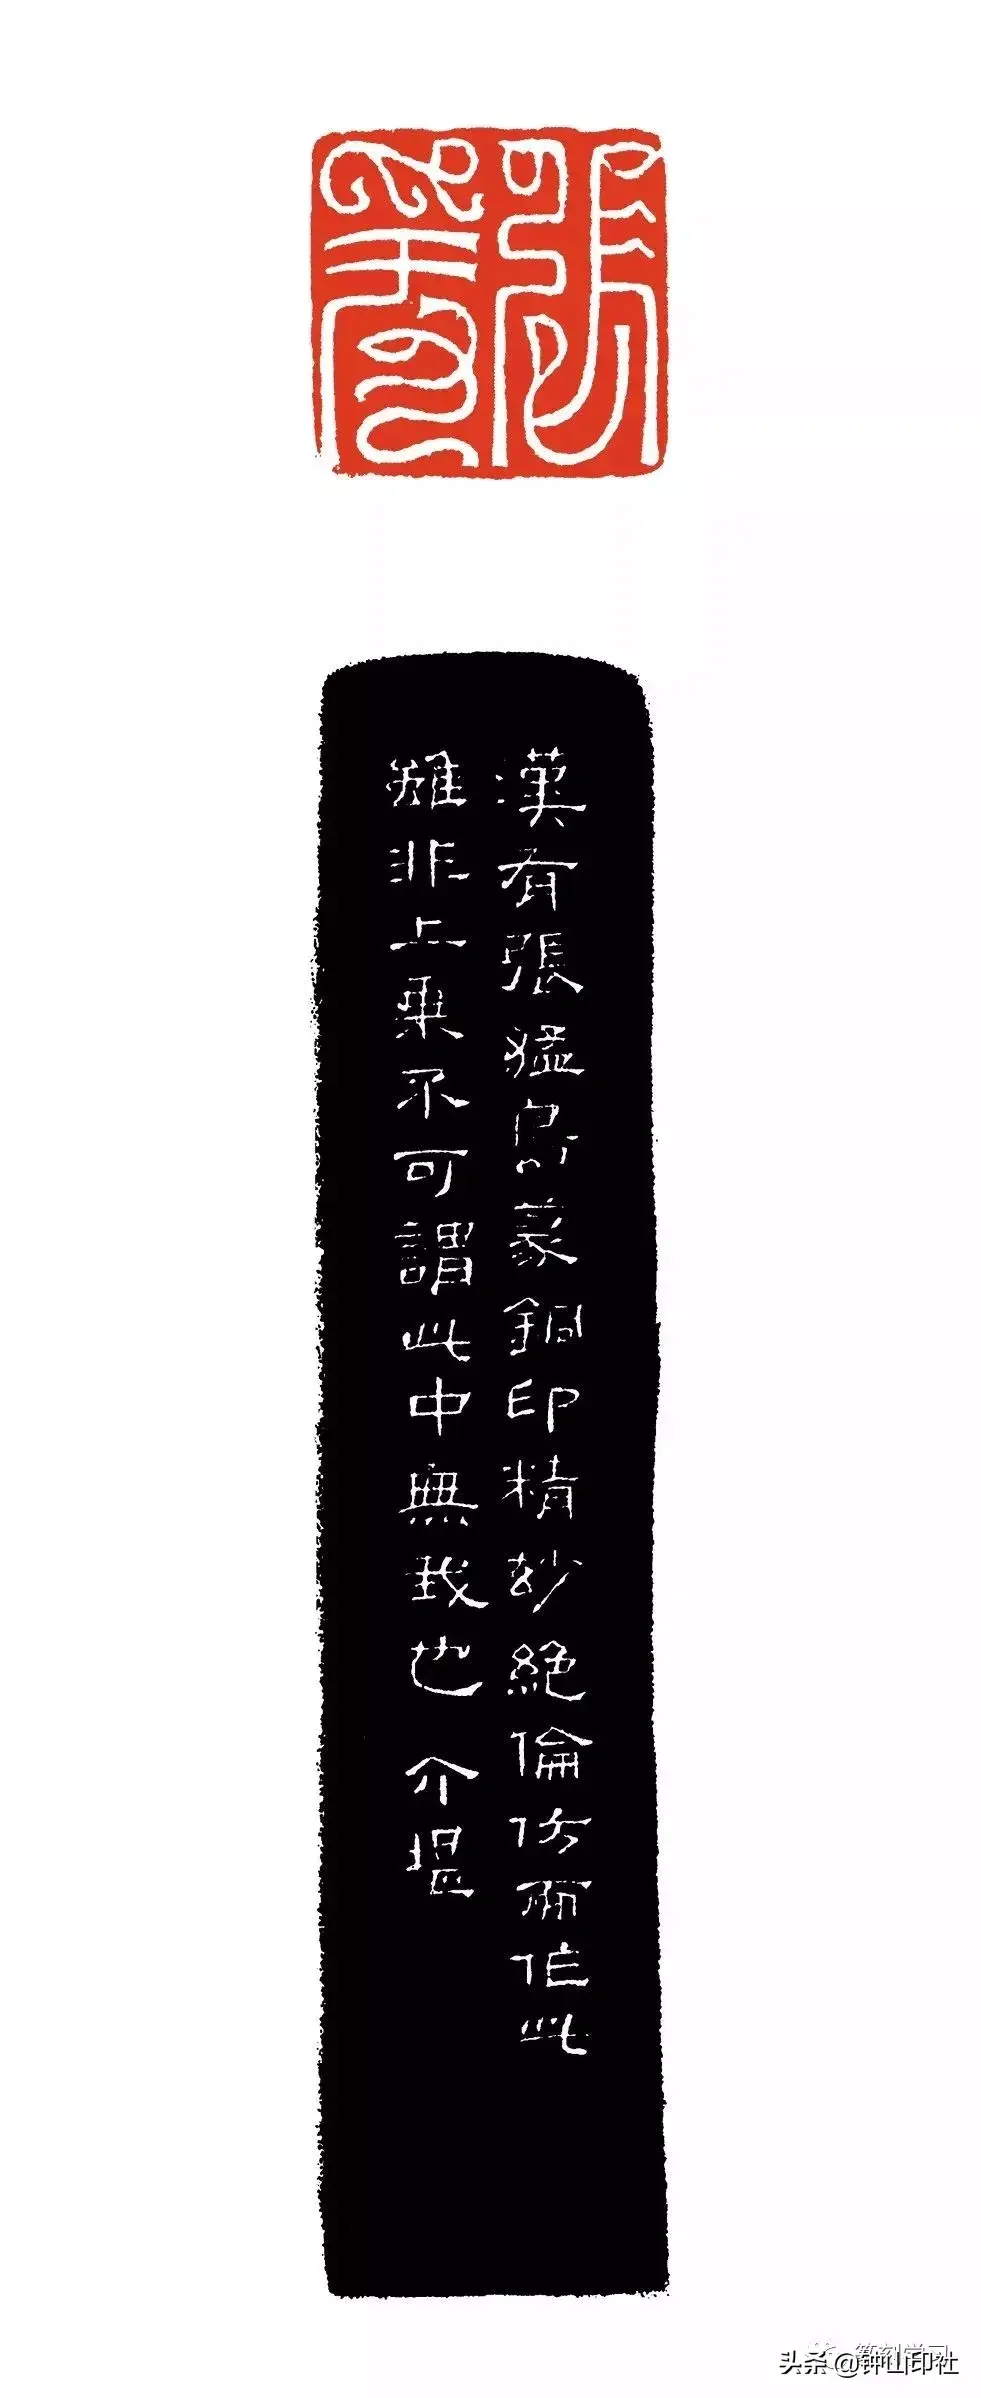 漢有張猛鳥篆銅印精玅絕倫仿而作此
雖非上乘不可謂此中無我也 介堪
篆刻学习
头条@钟山印社